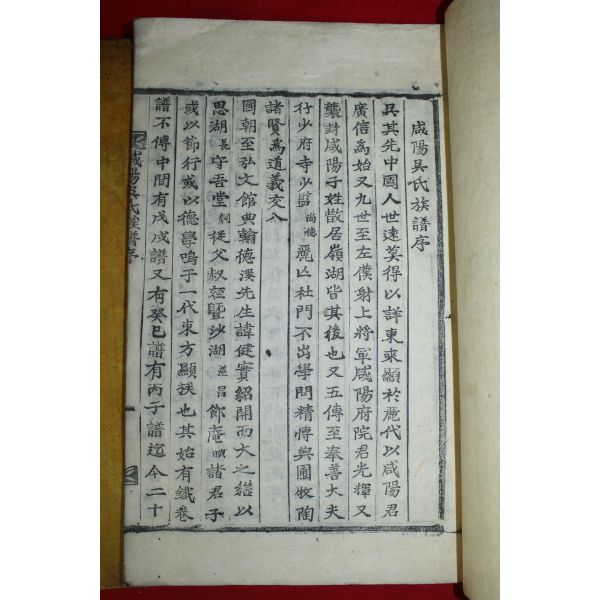 咸陽吳氏族譜序
吳其先中國人世遠莫得以詳東來顯於麗代以咸陽君
廣信爲始又九世至左僕射上將軍咸陽府院君光輝又
襲封咸陽子姓散居嶺湖皆其後也又五傳至奉善大夫
行少府寺少監尙德麗亡杜門不出學問精博與圃牧陶
諸賢爲道義交入
國朝至弘文館典翰德溪先生諱健實紹開而大之繼以
思湖長守吾堂僩從父叔姪曁沙湖益昌節庵諸君子
或以節行或以德學鳴于一代東方顯族也其始有鐵卷
譜不傳中間有戊戌譜又有癸巳譜有丙子譜迄今二十
咸陽吳氏族譜序